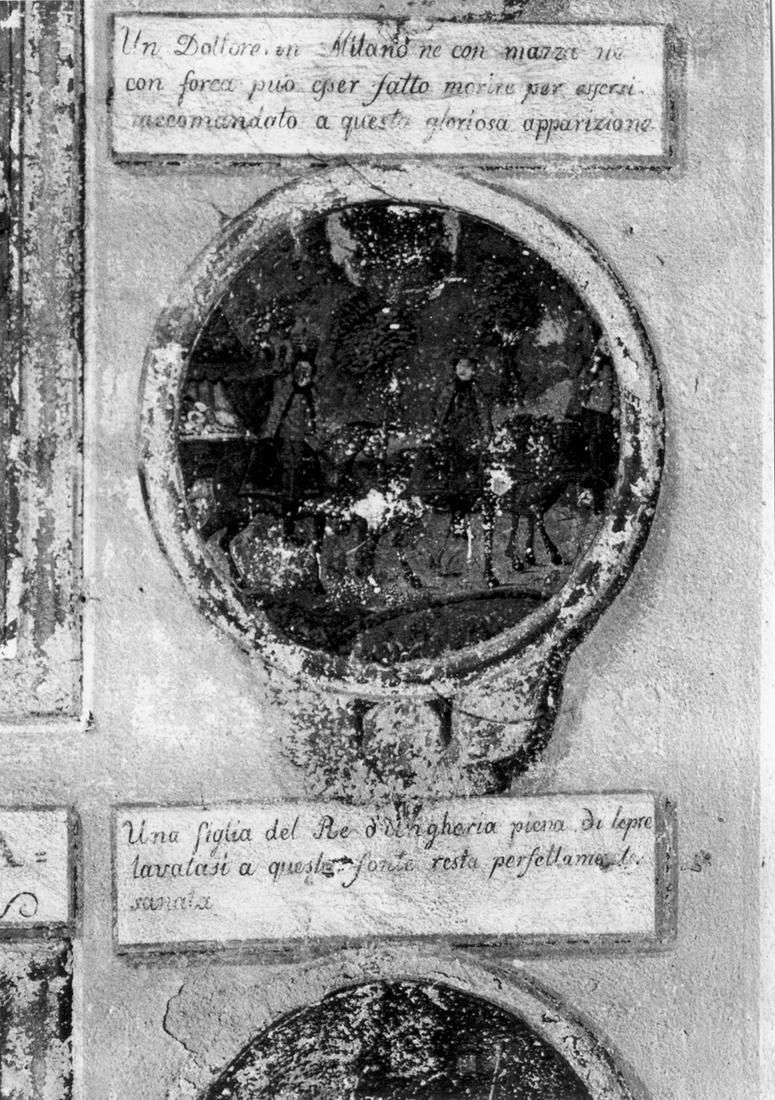 Un Dottore in Milano ne con mazza ne
con forca può esser fatto morire per essersi
raccomandato a questa gloriosa apparizione
Una figlia del Re d'Ungheria piena di lepre
lavatasi a questa fonte resta perfettamente
sanata
A=